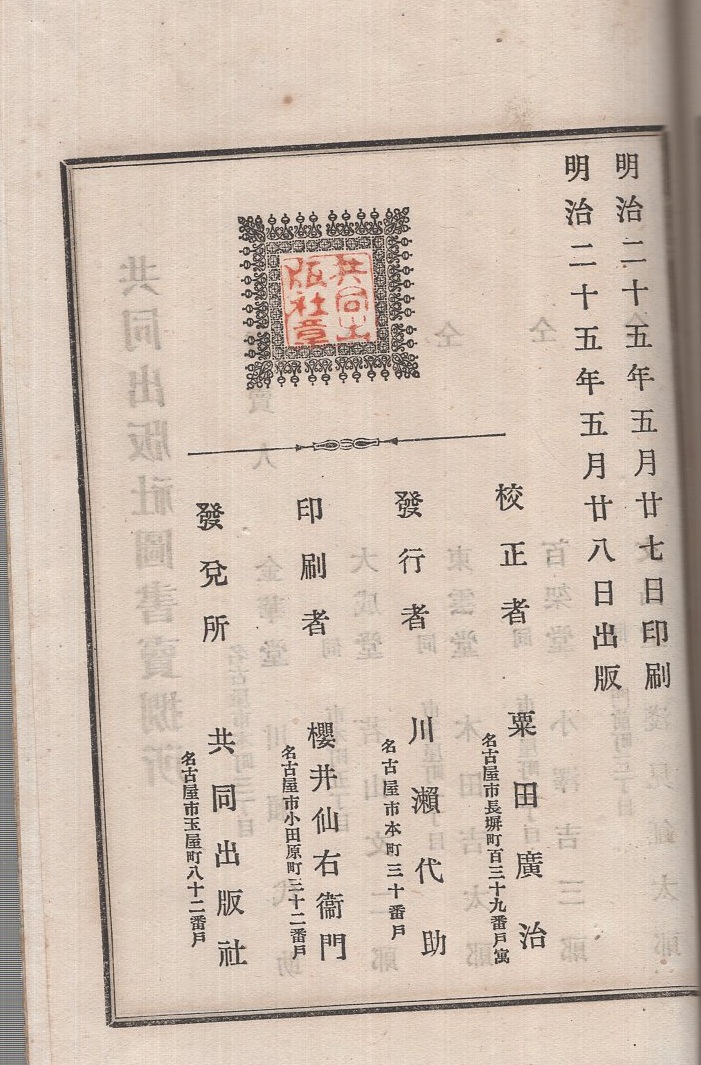 明治二十五年五月廿七日印刷
明治二十五年五月廿八日出版
共同出
版社章
校正者
粟田廣治
名古屋市長塀町百三十九番戸寓
發行者
川瀬代助
名古屋市本町三十番戸
印刷者
櫻井仙右衞門
名古屋市小田原町三十二番戸
發兌所
共同出版社
名古屋市玉屋町八十二番戸
共同出版社圖書賣捌所